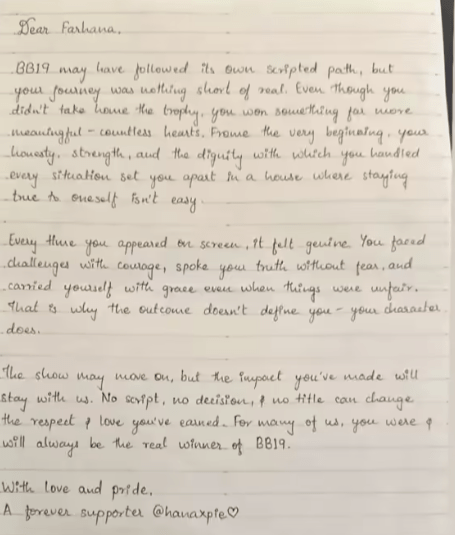 Dear Farhana,
BB19 may have followed its own scripted path, but
your journey was nothing short of real. Even though you
didn't take home the trophy, you won something far more
meaningful - countless hearts. Frome the very beginning, your
honesty, strength, and the dignity with which you handled
every situation set you apart in a house where staying
true to oneself isn't easy.
Every time you appeared on screen, it felt genuine You faced
challenges with courage, spoke your truth without fear, and
carried yourself with grace even when things were unfair.
That is why the outcome doesn't define you - your character
does.
The show may move on, but the impact you've made will
stay with us. No script, no decision, & no title can change
the respect & love you've earned. For many of us, you were &
will always be the real winner of BB19.
With love and pride,
A forever supporter @hanaxpie♡